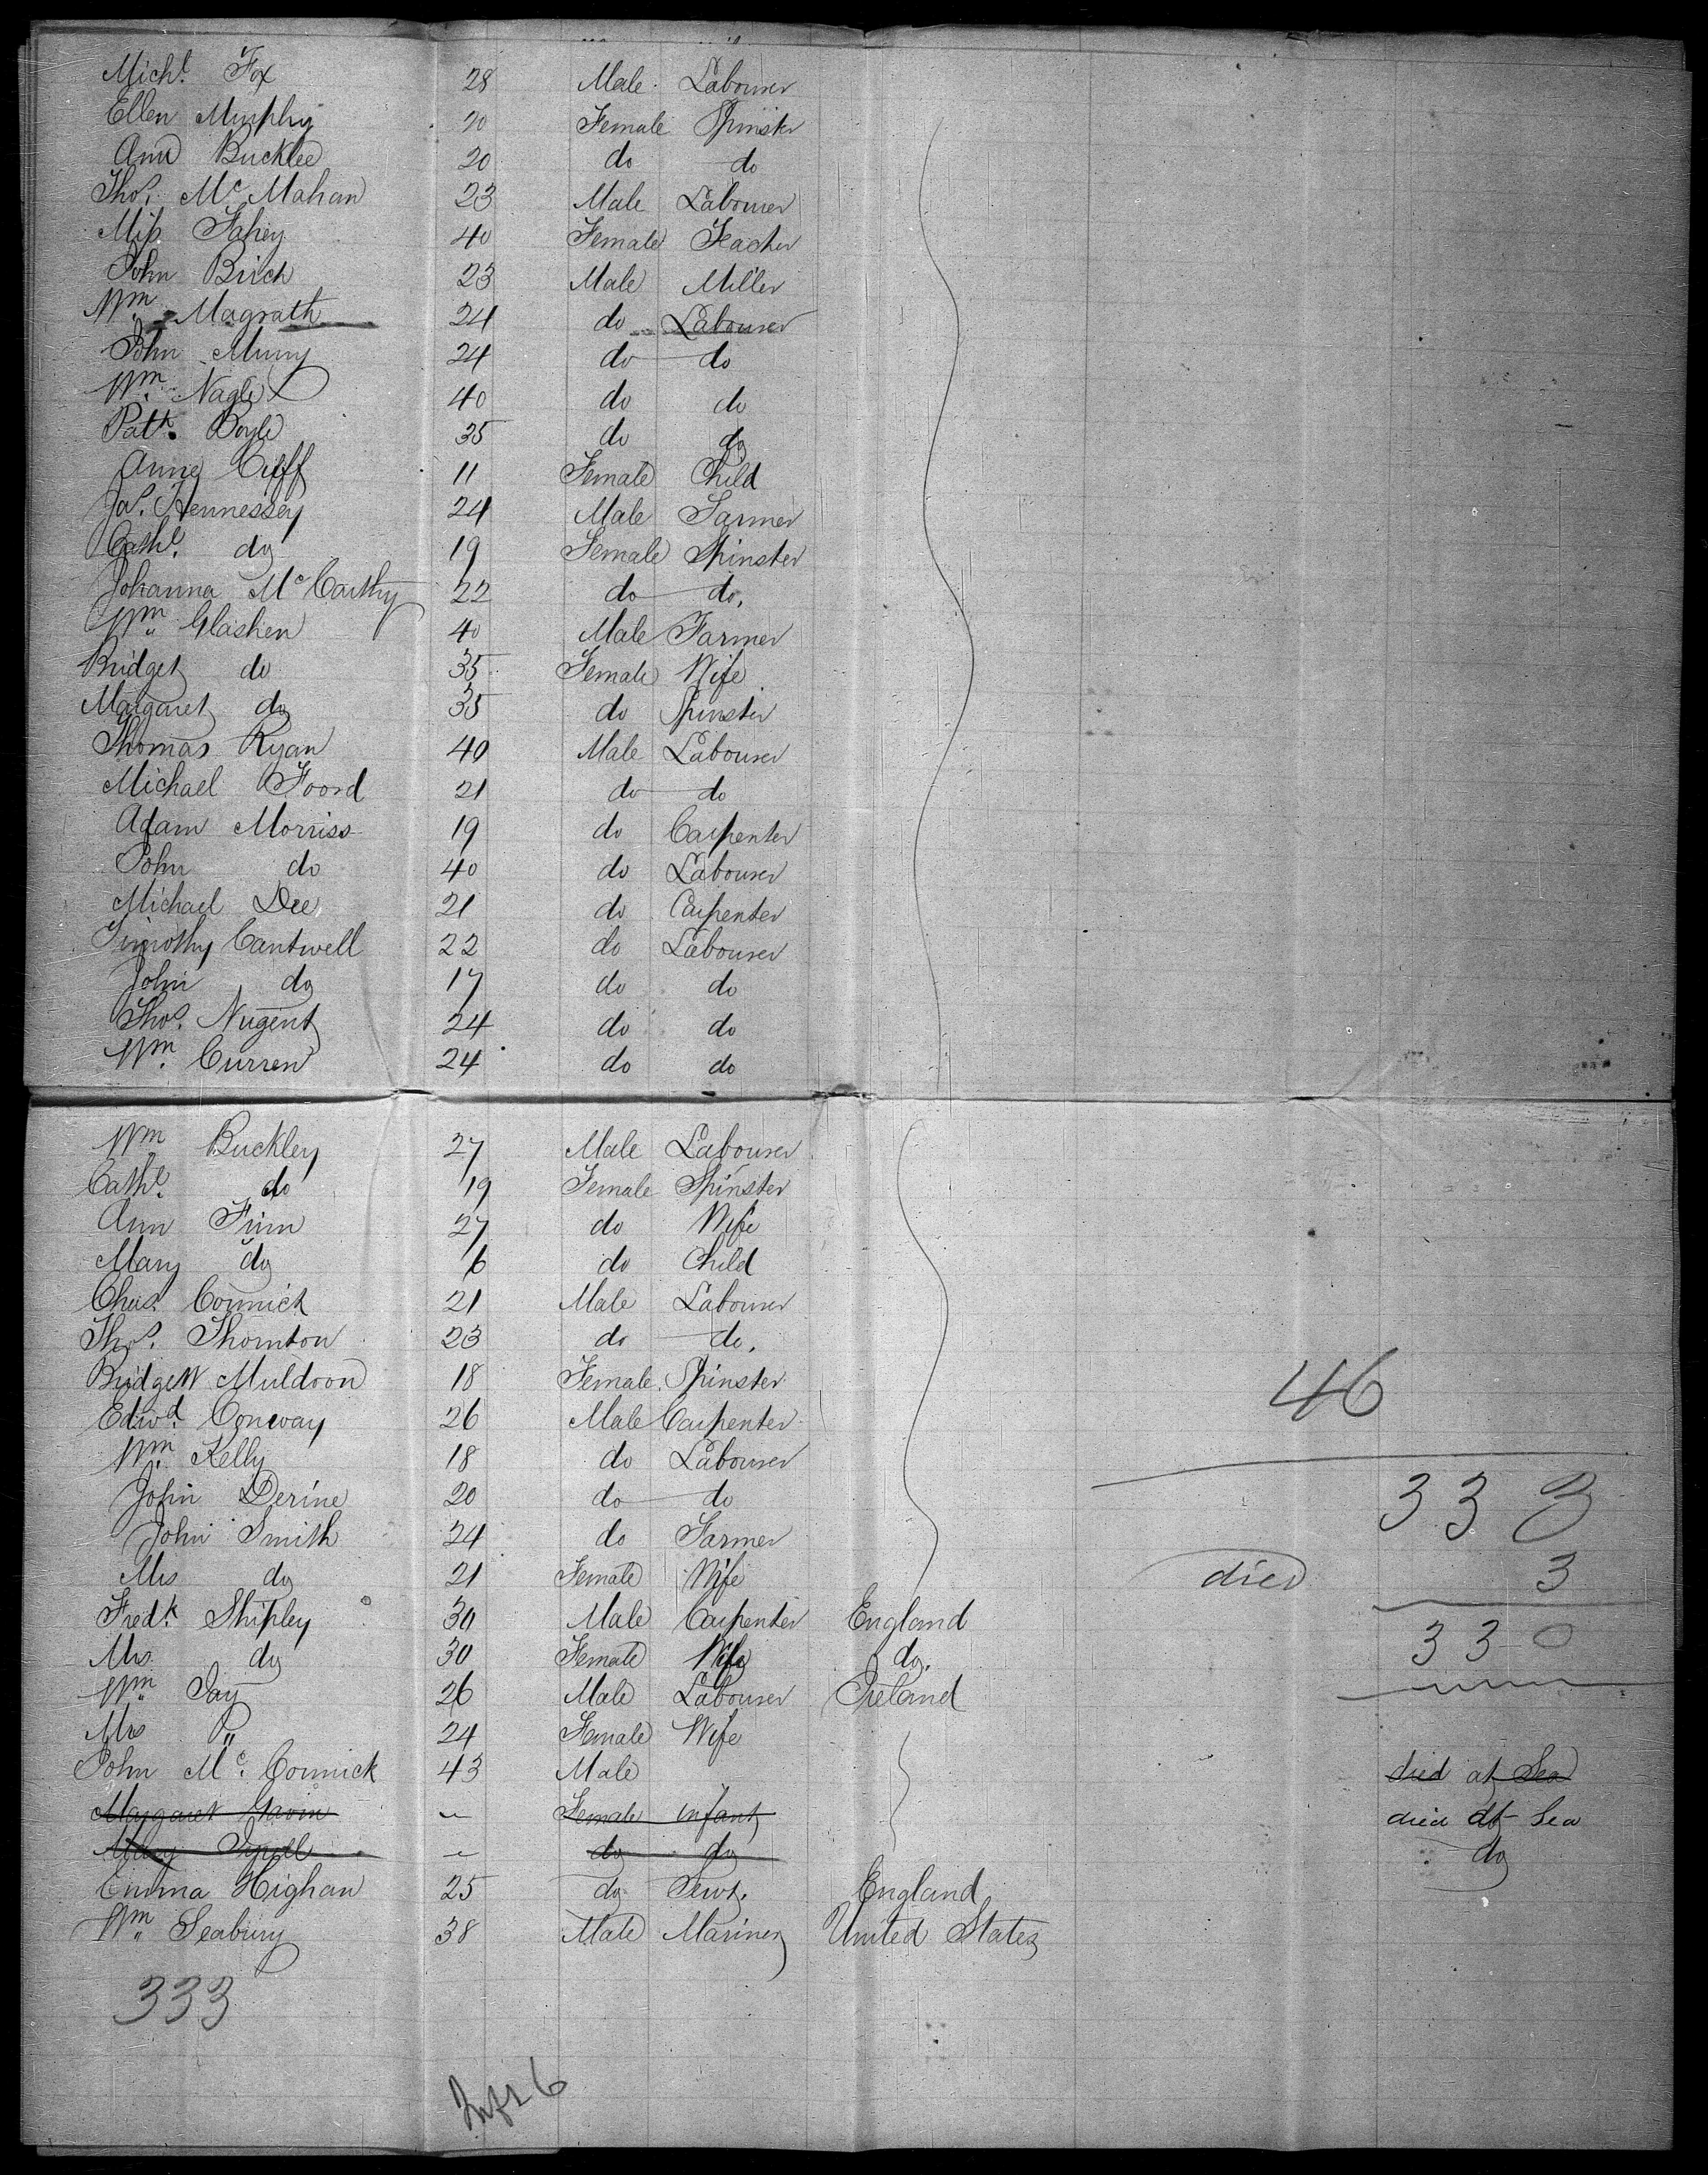 Michl. Fox 28 Male Labourer
Ellen Murphy 20 Female Spinster
Ann Bucklee 20 do do
Thos. Mc Mahan 23 Male Labourer
Miss Fahey 40 Female Teacher
John Birch 23 Male Miller
Wm. Magrath 24 do Labourer
John Murry 24 do do
Wm. Nagle 40 do do
Patk. Boyle 35 do do
Anne Cuff 11 Female Child
Jas. Hennessey 24 Male Farmer
Cathe. do 19 Female Spinster
Johanna Mc Carthy 22 do do.
Wm. Glashen 40 Male Farmer
Bridget do 35 Female Wife
Margaret do 35 do Spinster
Thomas Ryan 40 Male Labourer
Michael Foord 21 do do
Adam Morriss 19 do Carpenter
John do 40 do Labourer
Michael Dee 21 do Carpenter
Timothy Cantwell 22 do Labourer
John do 17 do do
Thos. Nugent 24 do do
Wm. Curren 24 do do
Wm Buckley 27 Male Labourer
Cathe. do 19 Female Spinster
Ann Finn 27 do Wife
Mary do 6 do Child
Chas. Cormick 21 Male Labourer
Thos. Thornton 23 do do.
Bridgett Muldoon 18 Female Spinster
Edwd. Conway 26 Male Carpenter
46
Wm. Kelly 18 do Labourer
John Derine 20 do do
333
John Smith 24 do Farmer
Mrs do 21 Female Wife
died 3
Fredk. Shipley 30 Male Carpenter England
Mrs. do 30 Female Wife do.
330
Wm Jay 26 Male Labourer Ireland
Mrs " 24 Female Wife
John Mc. Cormick 43 Male died at Sea
Margaret Gavin - Female infant died at Sea
Mary - do do do
Emma Highan 25 do Servt. England
Wm. Seabury 38 Male Mariner United States
333
Inft 6